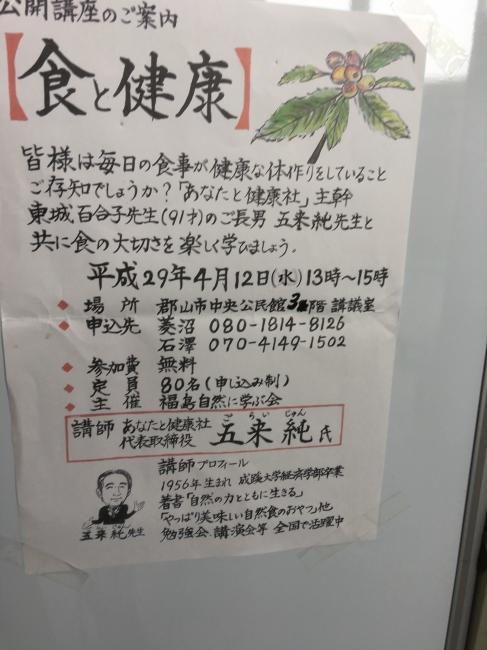 公開講座のご案内
【食と健康】
皆様は毎日の食事が健康な体作りをしていること
ご存知でしょうか？「あなたと健康社」主幹
東城百合子先生(91才)のご長男 五来純先生と
共に食の大切さを楽しく学びましょう。
平成29年4月12日(水)13時〜15時
◆ 場所 郡山市中央公民館3階 講議室
◆ 申込先 菱沼 080-1814-8126
石澤 070-4149-1502
◆ 参加費 無料
◆ 定員 80名(申し込み制)
◆ 主催 福島自然に学ぶ会
講師 あなたと健康社
代表取締役
ごらい じゅん
五来 純氏
講師プロフィール
1956年生まれ 成蹊大学経済学部卒業
著書「自然の力とともに生きる」
「やっぱり美味しい自然食のおやつ」他
勉強会、講演会等 全国で活躍中
五来 純先生